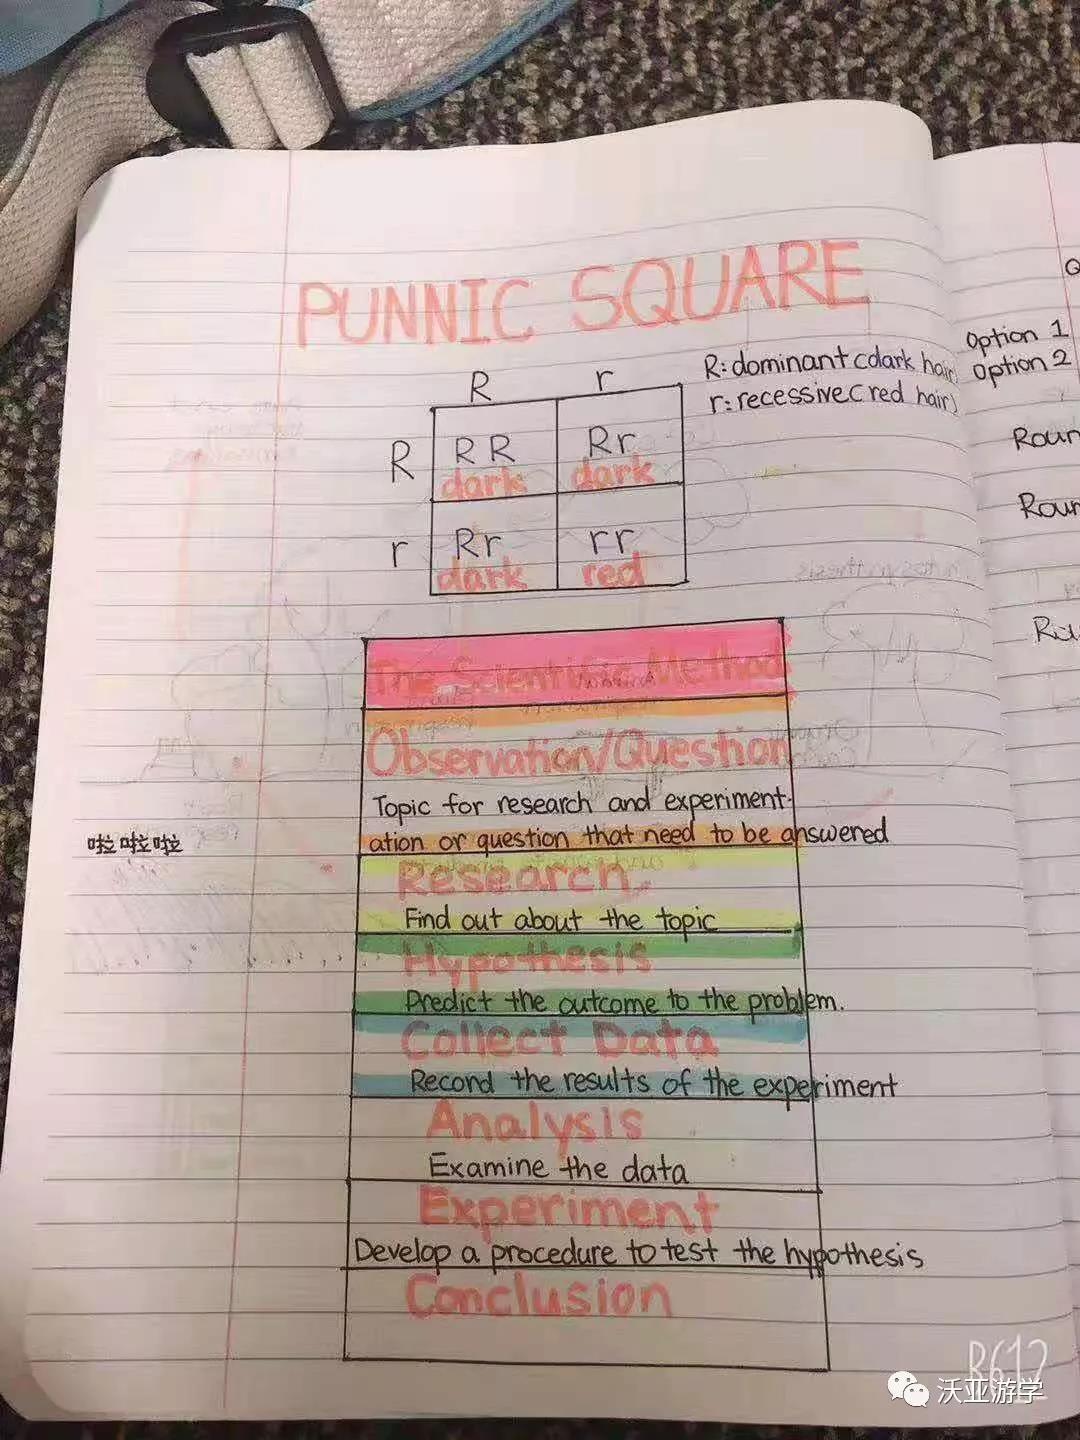 PUNNIC SQUARE
R: dominant (dark hair)
r: recessive (red hair)
R r
R RR Rr
dark dark
r Rr rr
dark red
The Scientific Method
Observation/Question
Topic for research and experiment-
ation or question that need to be answered
Research
Find out about the topic
Hypothesis
Predict the outcome to the problem.
Collect Data
Record the results of the experiment
Analysis
Examine the data
Experiment
Develop a procedure to test the hypothesis
Conclusion
啦啦啦
Option 1
Option 2
B612
沃亚游学